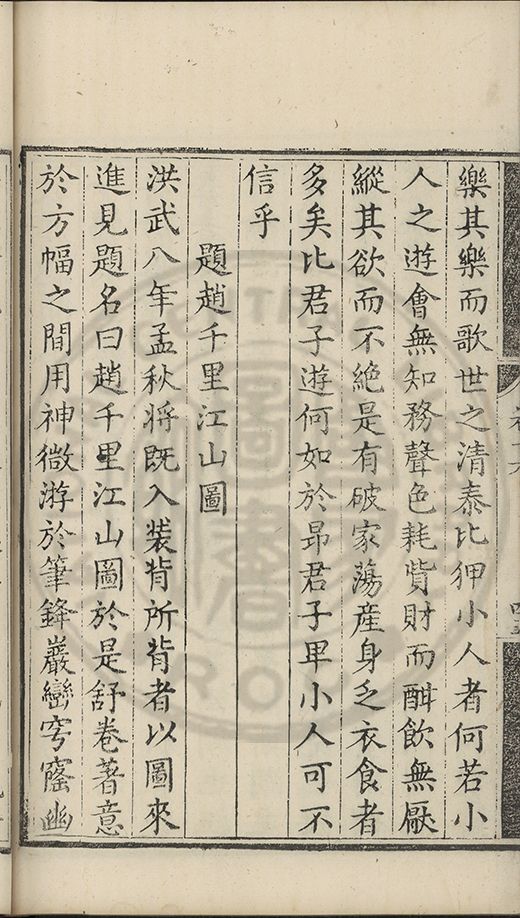 樂其樂而歌世之清泰比狎小人者何若小
人之遊會無知務聲色耗貲財而酣飲無厭
縱其欲而不絶是有破家蕩産身乏衣食者
多矣比君子遊何如於昂君子卑小人可不
信乎
題趙千里江山圖
洪武八年孟秋将既入裝背所背者以圖來
進見題名曰趙千里江山圖於是舒卷著意
於方幅之間用神微游於筆鋒巖巒穹窿幽